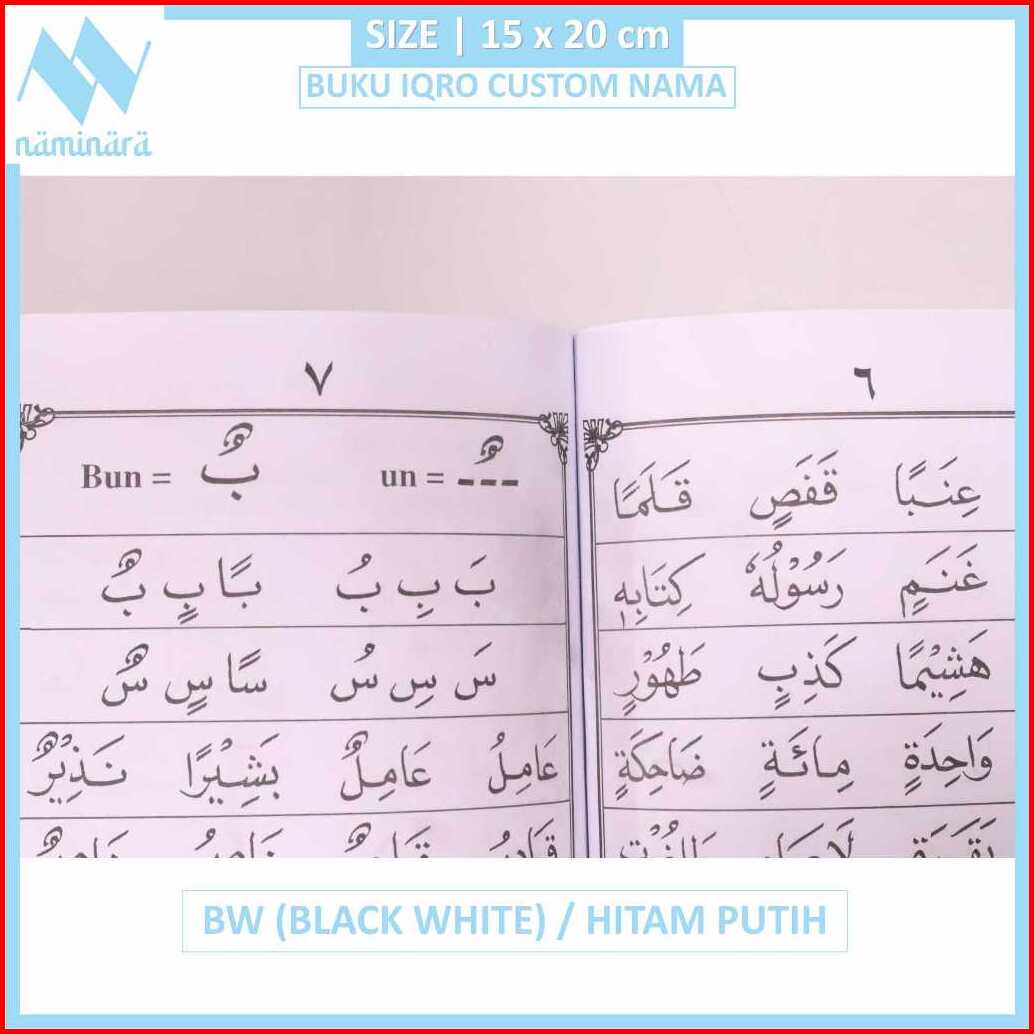 SIZE | 15 x 20 cm
BUKU IQRO CUSTOM NAMA
näminärä
٦
عِنَبًا قَفَصٍ قَلَمًا
غَنَمٍ رَسُوْلُهٗ كِتَابِهٖ
هَشِيْمًا كَذِبٍ طَهُوْرٍ
وَاحِدَةٍ مِائَةٍ ضَاحِكَةٍ
٧
un = ـٌ Bun = بٌ
بَ بِ بُ بًا بٍ بٌ
سَ سِ سُ سًا سٍ سٌ
عَامِلُ عَامِلٌ بَشِيْرًا نَذِيْرٌ
BW (BLACK WHITE) / HITAM PUTIH